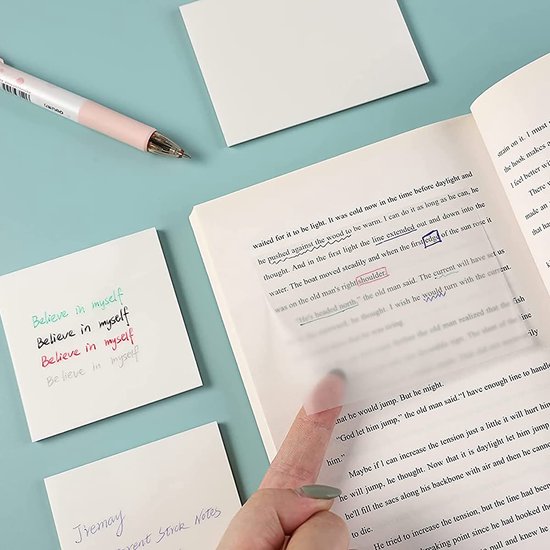 waited for it to be light. It was cold now in the time before daylight and
he pushed against the wood to be warm. I can do it as long as he can, he
thought. And in the first light the line extended out and down into the
water. The boat moved steadily and when the first edge of the sun rose it
was on the old man's right shoulder.
"He's headed north," the old man said. The current will have set us
he thought. I wish he would turn with the current.
the old man realized that the fish
that he would jump. But he might.
"God let him jump," the old man said. "I have enough line to handle
him."
Maybe if I can increase the tension just a little it will hurt him
he will jump, he thought. Now that it is daylight let him jump
he'll fill the sacs along his backbone with air and then he cannot
to die.
He tried to increase the tension, but the line had been
breaking point since he had hooked the
strain on it. I must
the hook makes
I feel better
There
made an
Believe in myself
Believe in myself
Believe in myself
Believe in myself
Jremay
Stick Notes